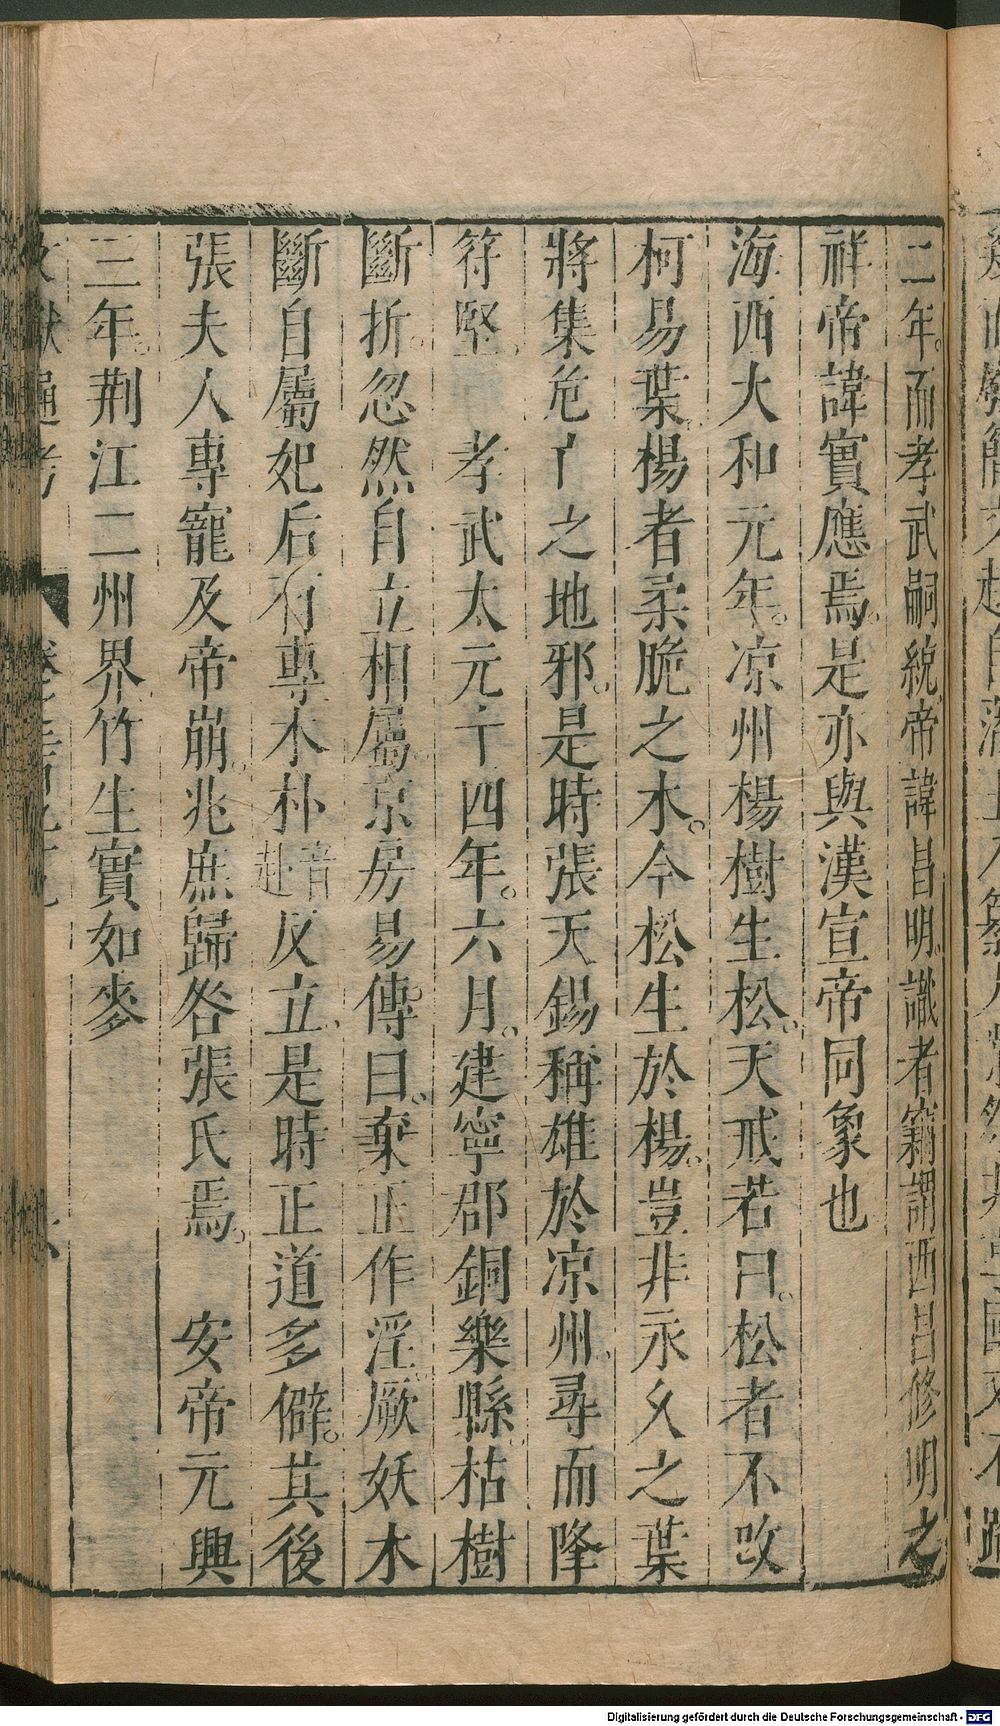 二年。而孝武嗣統帝諱昌明識者竊謂西昌修明之
祥帝諱實應焉。是亦與漢宣帝同象也
海西大和元年。凉州楊樹生松。天戒若曰。松者不改
柯易葉。楊者柔脆之木。今松生於楊。豈非永久之葉
將集危亡之地邪。是時張天錫稱雄於凉州。尋而降
符堅。 孝武太元十四年。六月。建寧郡銅樂縣枯樹
斷折。忽然自立相屬京房易傳曰。棄正作淫。厥妖木
斷自屬妃后有專木朴音赴反立。是時正道多僻。其後
張夫人專寵及帝崩。兆庶歸咎張氏焉。 安帝元興
三年。荆江二州界竹生實如麥
Digitalisierung gefördert durch die Deutsche Forschungsgemeinschaft - DFG